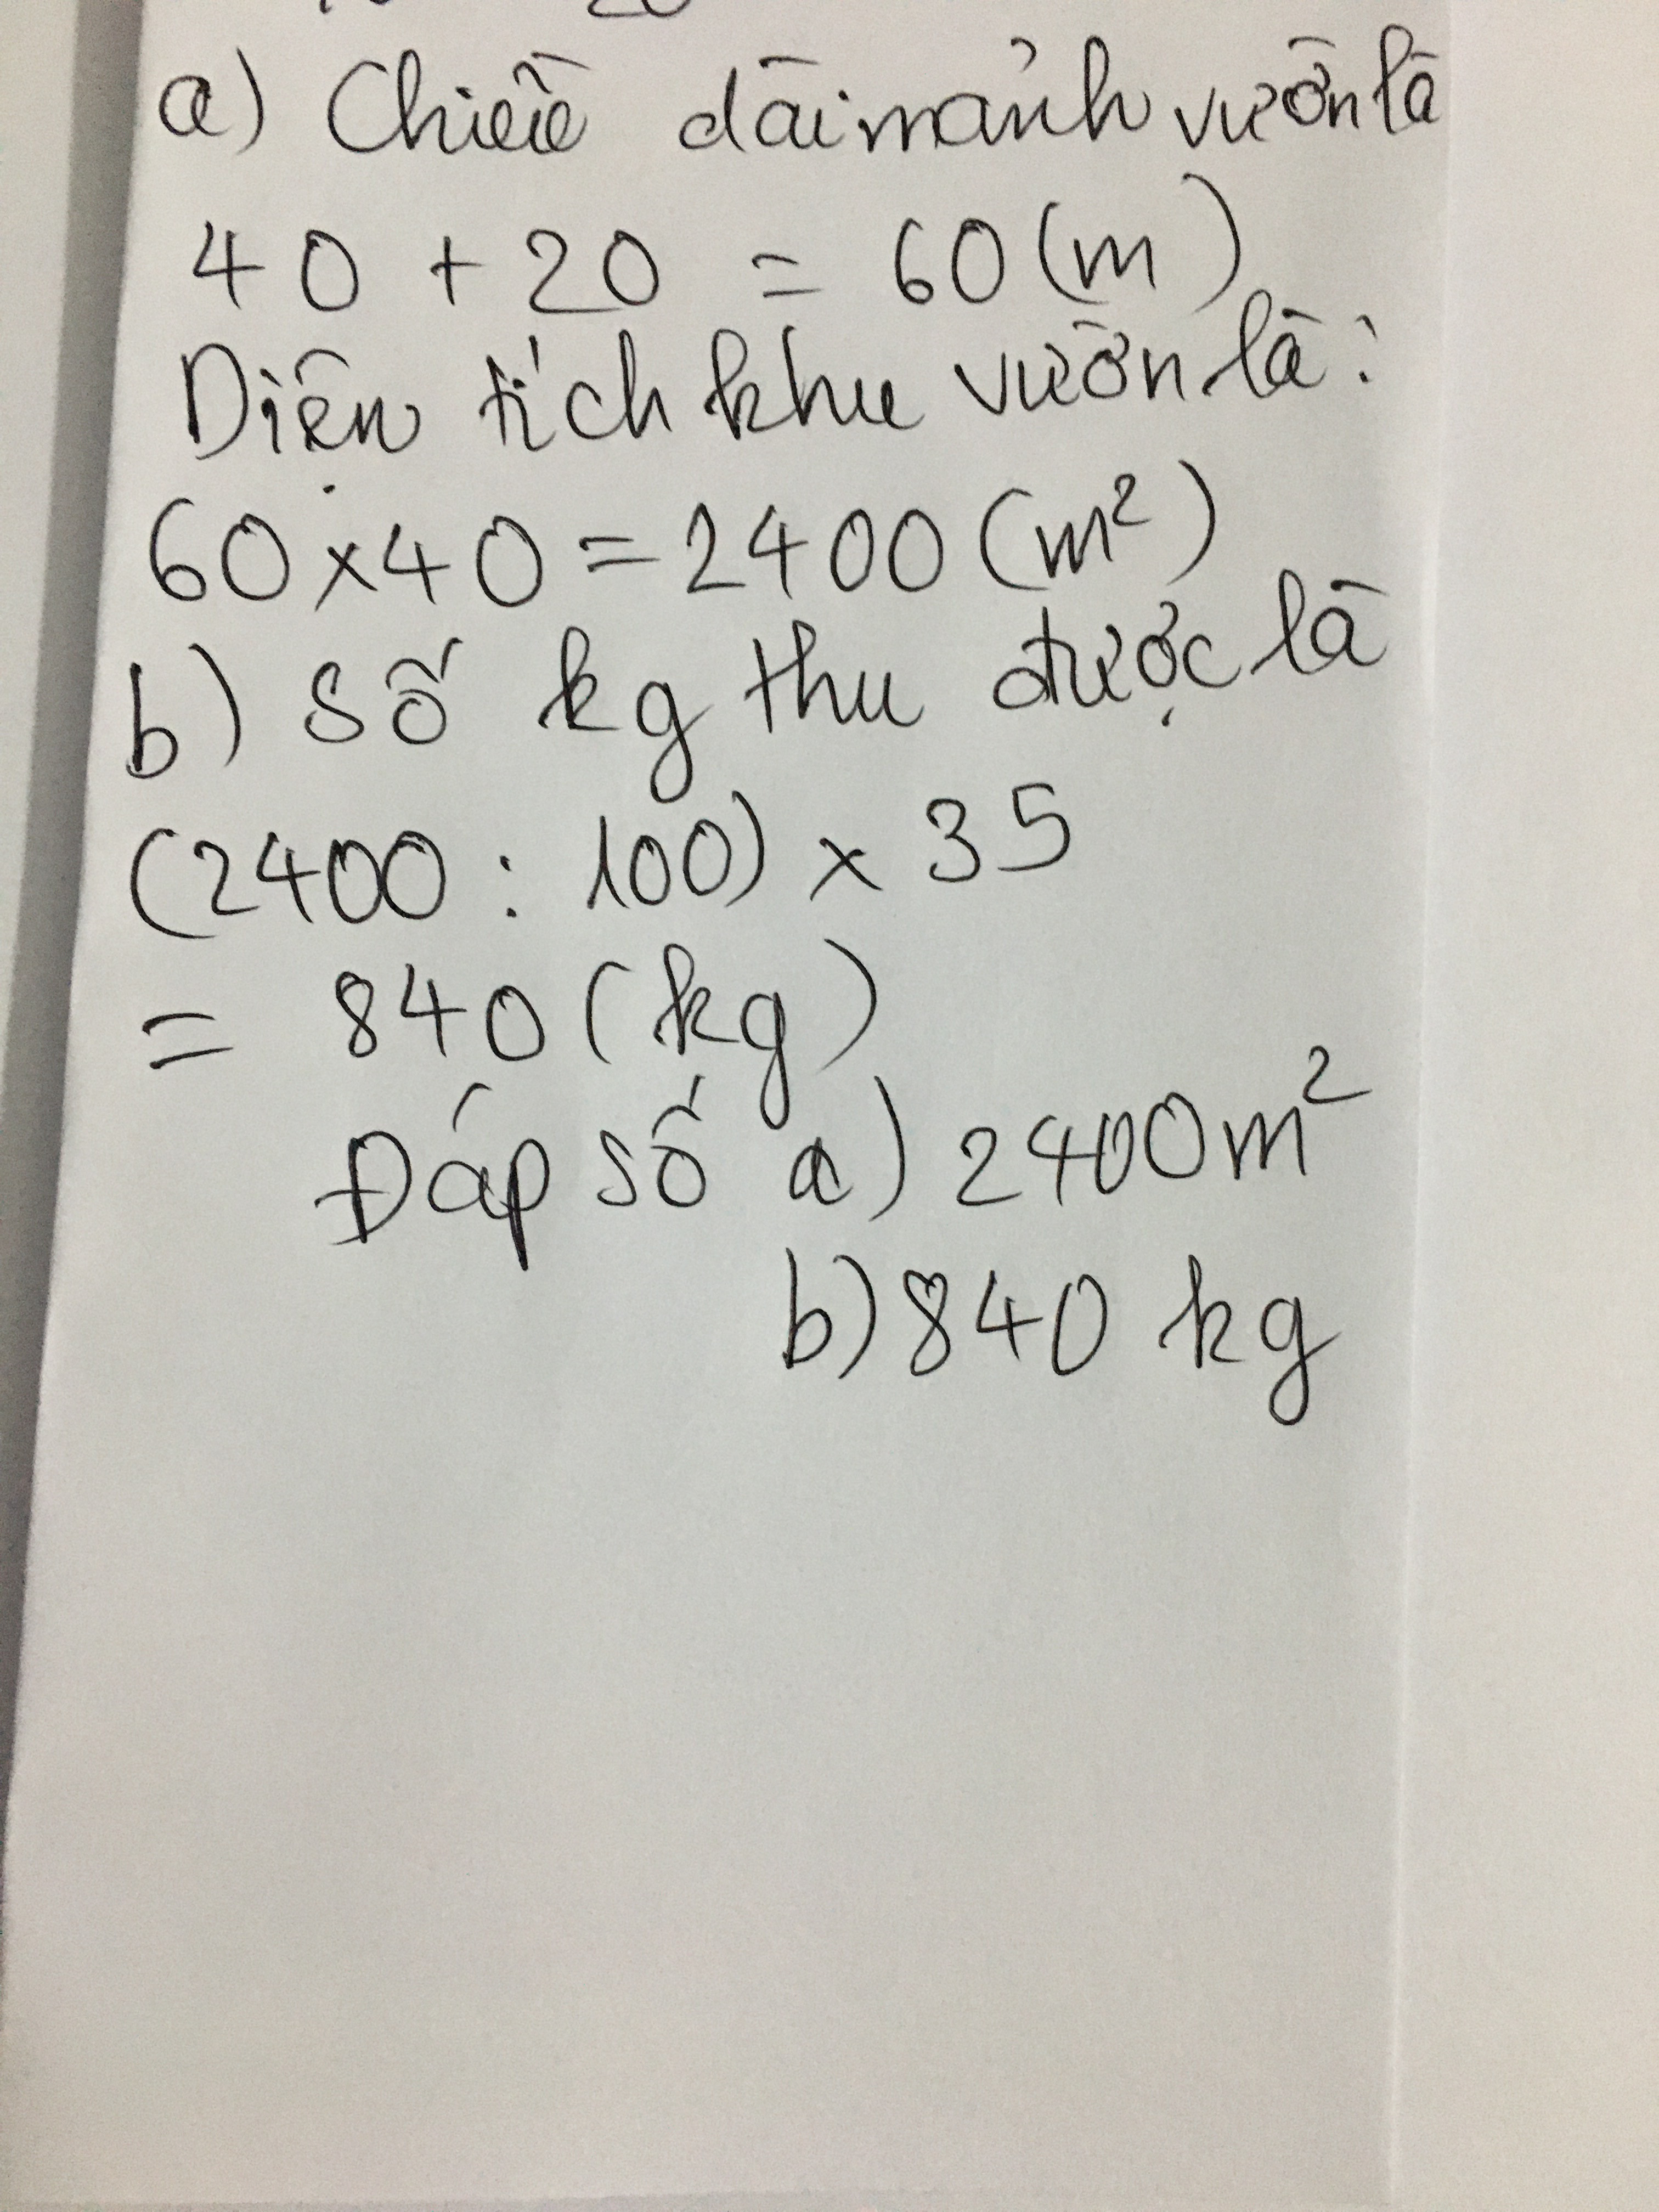 a) Chiều dài mảnh vườn là
40 + 20 = 60 (m)
Diện tích khu vườn là:
60 x 40 = 2400 (m²)
b) số kg thu được là
(2400 : 100) x 35
= 840 (kg)
Đáp số a) 2400m²
b) 840 kg